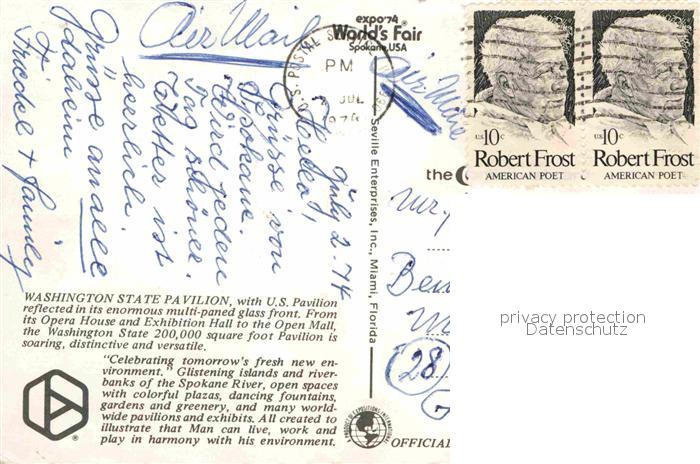 Air Mail
expo'74
World's Fair
Spokane, USA
U.S. POSTAL SE
PM
JUL
1974
July 2. 74
Grüsse von
Spokane.
Wird jeden
Tag schöner.
Wetter ist
herrlich.
Grüsse an alle
daheim
Friedel + Family
WASHINGTON STATE PAVILION, with U.S. Pavilion
reflected in its enormous multi-paned glass front. From
its Opera House and Exhibition Hall to the Open Mall,
the Washington State 200,000 square foot Pavilion is
soaring, distinctive and versatile.
"Celebrating tomorrow's fresh new en-
vironment." Glistening islands and river-
banks of the Spokane River, open spaces
with colorful plazas, dancing fountains,
gardens and greenery, and many world-
wide pavilions and exhibits. All created to
illustrate that Man can live, work and
play in harmony with his environment.
Seville Enterprises, Inc., Miami, Florida
Air Mail
the
Ben
28
OFFICIAL
U.S. 10c
Robert Frost
AMERICAN POET
U.S. 10c
Robert Frost
AMERICAN POET
privacy protection
Datenschutz